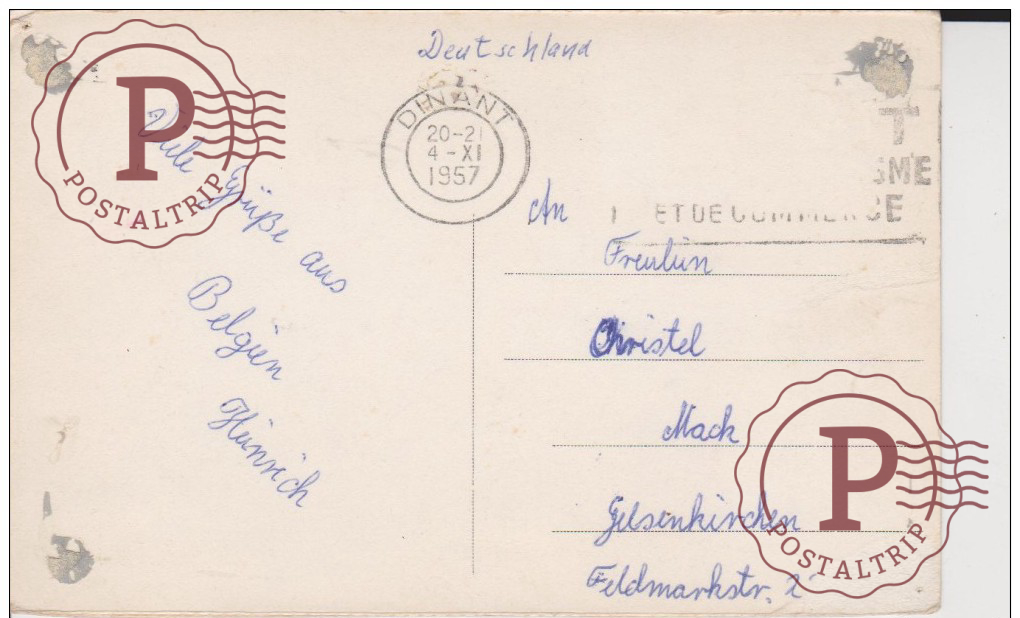 Deutschland
DINANT
20-21
4-XI
1957
T
SME
ET DE COMMERCE
Viele Grüße aus
Belgien
Heinrich
An
Freulein
Christel
Mack
Gelsenkirchen
Feldmarkstr. 2
P
POSTALTRIP
P
POSTALTRIP